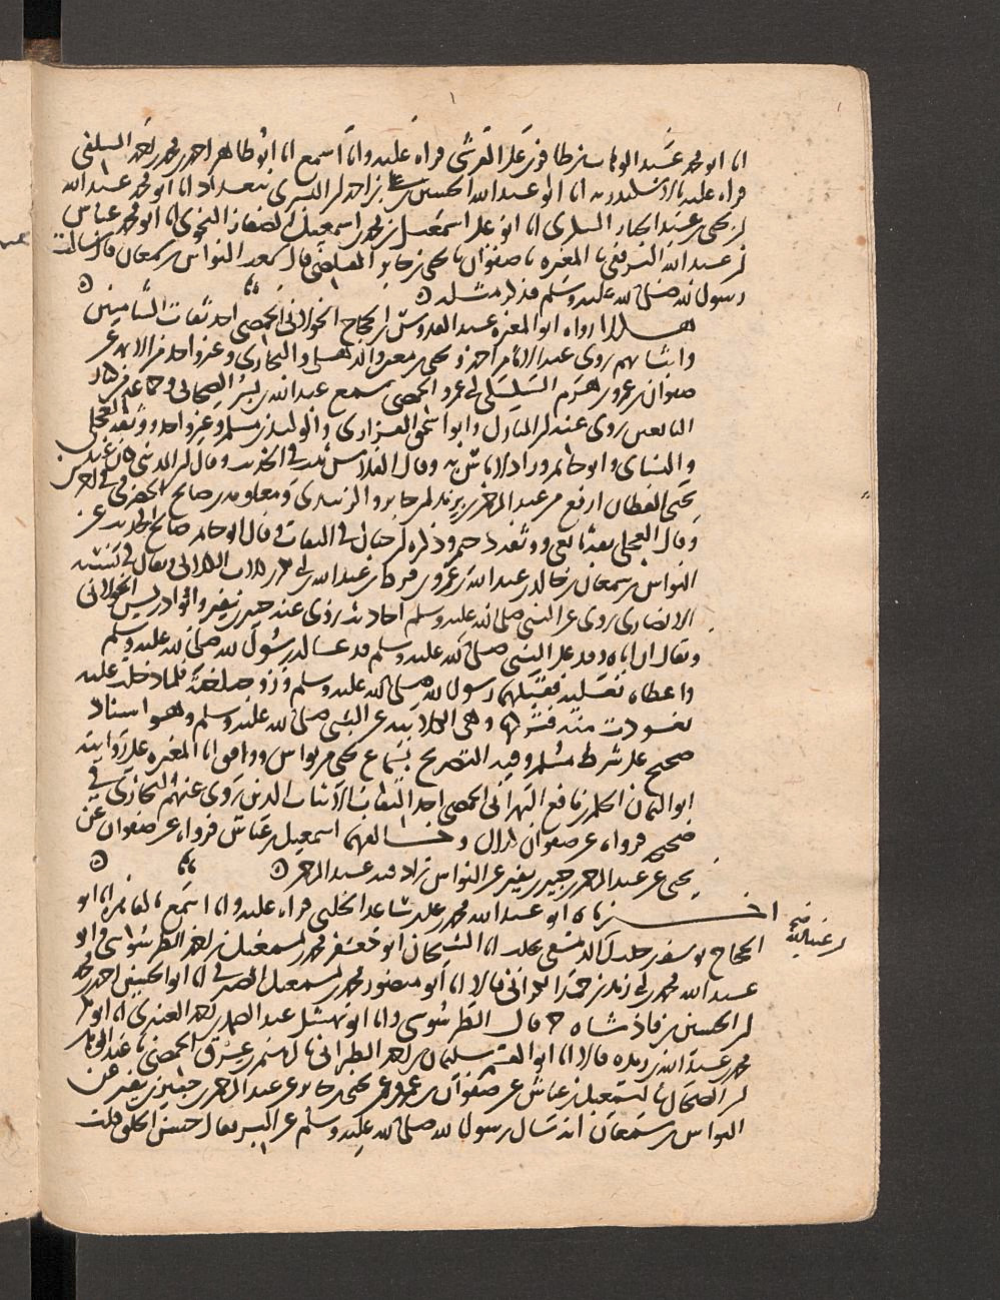 انا ابو محمد عبد الوهاب بن ظافر بن على القرشى قراه عليه وانا اسمع انا ابو طاهر احمد بن محمد بن احمد السلفى
قراه عليه بالاسكندريه انا ابو عبد الله الحسين بن على بن احمد بن البسرى ببغداد انا ابو محمد عبد الله
بن يحيى بن عبد الجبار السكرى انا ابو على اسمعيل بن محمد بن اسمعيل الصفار النحوى انا ابو محمد عباس
بن عبد الله الترقفى نا ابو المغيره نا صفوان نا يحيى بن جابر القاضى قال سمعت النواس بن سمعان قال سالت
رسول الله صلى الله عليه وسلم فذكر مثله
هكذا رواه ابو المغيره عبد القدوس بن الحجاج الخولانى الحمصى احد ثقات الشاميين
واثباتهم روى عنه الامام احمد ويحيى بن معين والذهلى والبخارى وغير واحد من الايمه عن
صفوان بن عمرو بن هرم السكسكى ابى عمرو الحمصى سمع عبد الله بن بسر الصحابى وجماعه من كبار
التابعين روى عنه ابن المبارك وابو اسحق الفزارى والوليد بن مسلم وغير واحد ووثقه العجلى
والنساى وابو حاتم وزاد لا باس به وقال الفلاس ثبت فى الحديث وقال ابن المدينى كان عند
يحيى القطان ارفع من عبد الرحمن بن يزيد بن جابر والزبيدى ومعاويه بن صالح الحضرمى
وقال العجلى ثقه تابعى ووثقه دحيم وذكره ابن حبان فى الثقات قال ابو حاتم صالح الحديث عن
النواس بن سمعان بن خالد بن عبد الله بن عمرو بن قرط بن عبد الله بن ابى بكر بن كلاب الكلابى ويقال فى نسبته
الانصارى روى عن النبى صلى الله عليه وسلم احاديث روى عنه جبير بن نفير وابو ادريس الخولانى
ويقال ان اباه وفد على النبى صلى الله عليه وسلم فدعا له رسول الله صلى الله عليه وسلم
واعطاه نعليه فقبلهما رسول الله صلى الله عليه وسلم وزوجه اخته فلما دخلت عليه
تعوذت منه فتركها وهى الكلابيه عن النبى صلى الله عليه وسلم وهو اسناد
صحيح على شرط مسلم وفيه التصريح بسماع يحيى من نواس ووافق ابا المغيره على روايته
ابو اليمان الحكم بن نافع البهرانى الحمصى احد الثقات الاثبات الذين روى عنهم البخارى فى
صحيحه فرواه عن صفوان كذلك وخالفهما اسمعيل بن عياش فرواه عن صفوان عن
يحيى عن عبد الرحمن بن جبير بن نفير عن النواس زاد فيه عبد الرحمن
اخبرناه ابو عبد الله محمد بن على بن ساعد الحلبى قراه عليه وانا اسمع بالقاهره انا ابو
الحجاج يوسف بن خليل الدمشقى بحلب انا الشيخان ابو جعفر محمد بن اسمعيل بن احمد الطرسوسى وابو
بن عبد الله صح
عبد الله محمد بن ابى زيد بن حمد الكرانى قالا انا ابو منصور محمود بن اسمعيل الصيرفى انا ابو الحسين احمد بن محمد
بن الحسين بن فاذشاه ح قال الطرسوسى وانا ابو نهشل عبد الصمد بن احمد العنبرى انا ابو بكر
محمد بن عبد الله بن ريذه قالا انا ابو القسم سليمان بن احمد الطبرانى نا ابراهيم بن عرق الحمصى نا عبد الوهاب
بن الضحاك نا اسمعيل بن عياش عن صفوان بن عمرو عن يحيى بن جابر عن عبد الرحمن بن جبير بن نفير عن
النواس بن سمعان انه سال رسول الله صلى الله عليه وسلم عن البر فقال حسن الخلق قلت